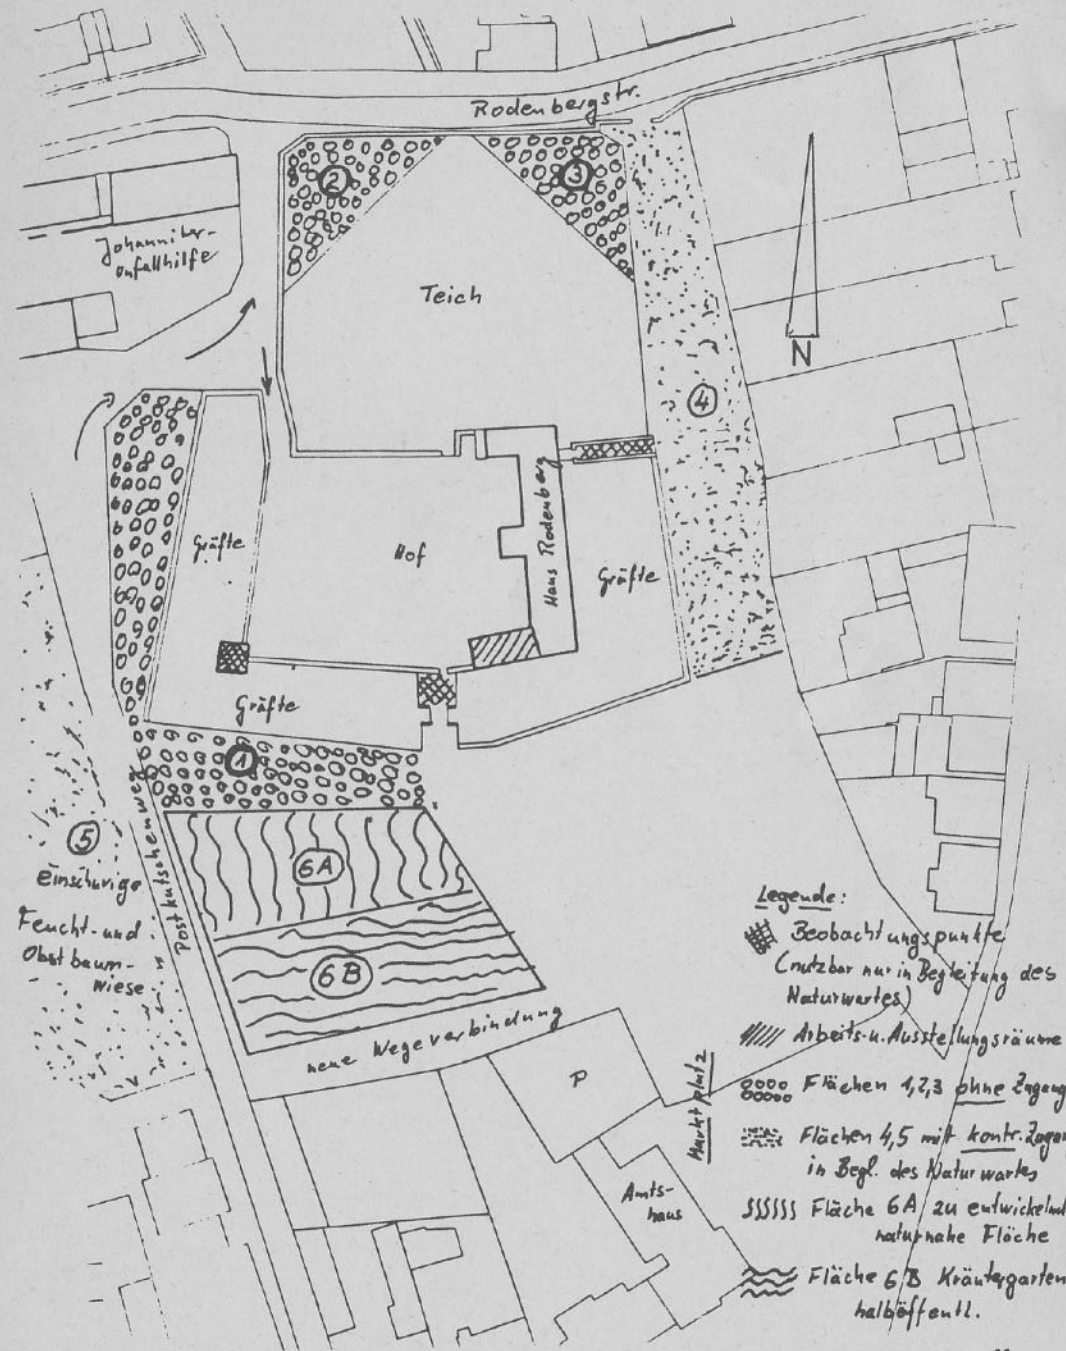 Rodenbergstr.
2
3
Johanniter-
unfallhilfe
Teich
N
4
Gräfte
Hof
Haus Rodenberg
Gräfte
Gräfte
1
Postkutschenweg
5
einschürige
Feucht- und
Obstbaum-
wiese
6A
6B
neue Wegeverbindung
P
Marktplatz
Amts-
haus
Legende:
Beobachtungspunkte
(nutzbar nur in Begleitung des
Naturwartes)
Arbeits- u. Ausstellungsräume
Flächen 1,2,3 ohne Zugang
Flächen 4,5 mit kontr. Zugan
in Begl. des Naturwartes
Fläche 6A zu entwickelnde
naturnahe Fläche
Fläche 6B Kräutergarten
halböffentl.